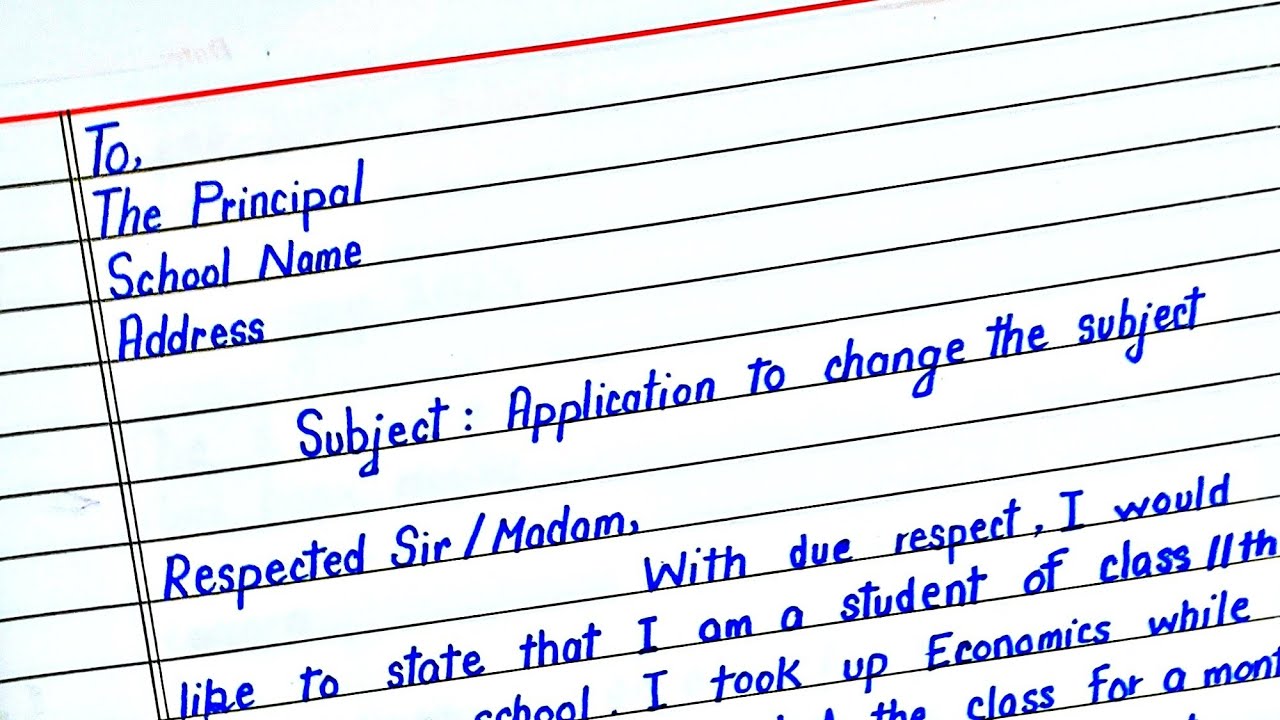 To,
The Principal
School Name
Address
Subject: Application to change the subject
Respected Sir/Madam,
With due respect, I would
like to state that I am a student of class 11th
school. I took up Economics while
the class for a mont